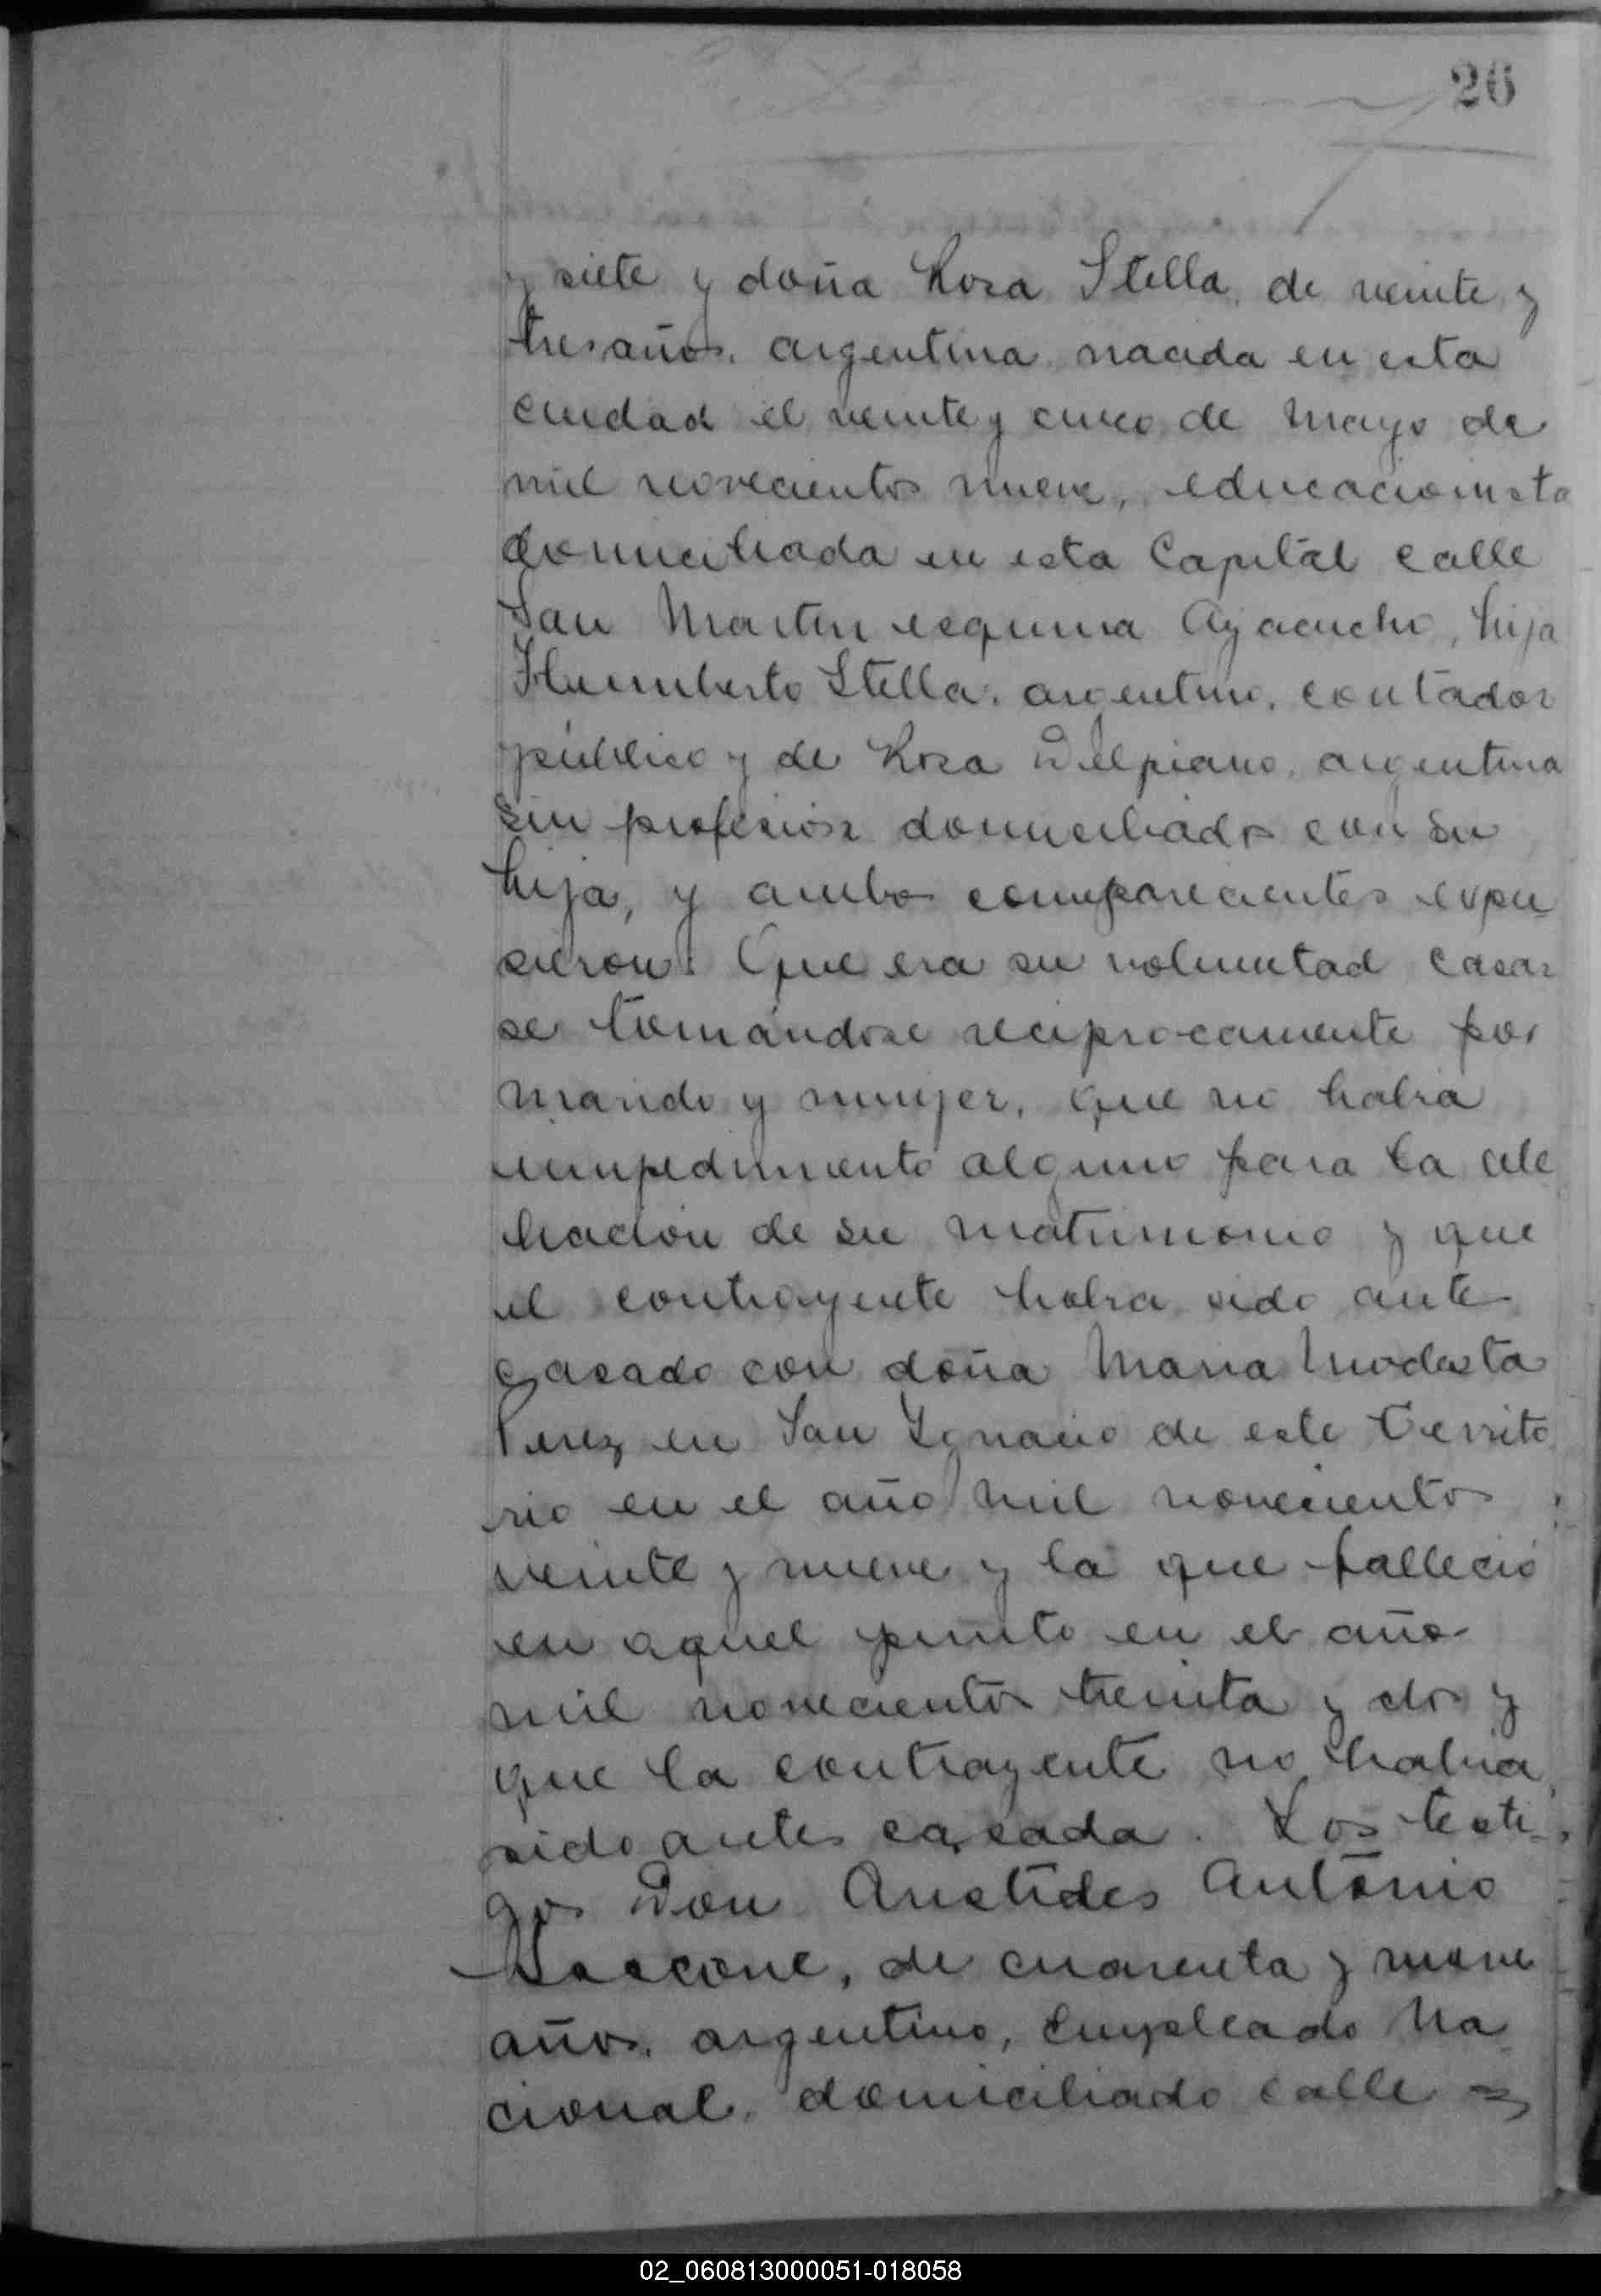 26
y siete y doña Rosa Stella, de veinte y
tres años, argentina, nacida en esta
ciudad el veinte y cinco de Mayo de
mil novecientos nueve, educacionista
domiciliada en esta Capital calle
San Martin esquina Ayacucho, hija
Humberto Stella, argentino, contador
público y de Rosa Delpiano, argentina
sin profesion domiciliados con su
hija, y ambos comparecientes expu-
sieron: Que era su voluntad casar
se tomándose reciprocamente por
marido y mujer, que no habia
impedimento alguno para la cele
bracion de su matrimonio y que
el contrayente habia sido antes
casado con doña Maria Modesta
Perez en San Ignacio de este Territo
rio en el año mil novecientos
veinte y nueve y la que falleció
en aquel punto en el año
mil novecientos treinta y dos y
que la contrayente no habia
sido antes casada. Los testi-
gos Don Aristides Antonio
de cuarenta y nueve
años, argentino, empleado Na
cional, domiciliado calle
02_060813000051-018058